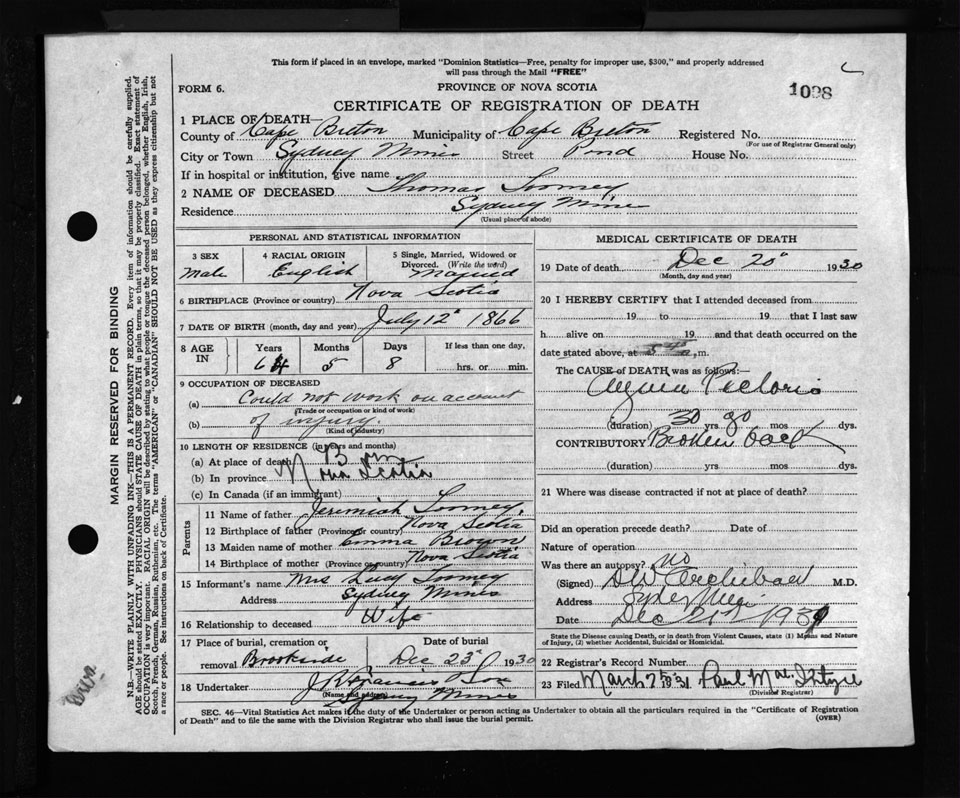 This form if placed in an envelope, marked "Dominion Statistics—Free, penalty for improper use, $300," and properly addressed
will pass through the Mail "FREE"
FORM 6. PROVINCE OF NOVA SCOTIA
CERTIFICATE OF REGISTRATION OF DEATH
1 PLACE OF DEATH—
County of Cape Breton Municipality of Cape Breton Registered No.
(For use of Registrar General only)
City or Town Sydney Mines Street Pond House No.
If in hospital or institution, give name
2 NAME OF DECEASED Thomas Toomey
Residence Sydney Mines
(Usual place of abode)
PERSONAL AND STATISTICAL INFORMATION
3 SEX 4 RACIAL ORIGIN 5 Single, Married, Widowed or
Divorced. (Write the word)
Male English Married
6 BIRTHPLACE (Province or country) Nova Scotia
7 DATE OF BIRTH (month, day and year) July 12" 1866
8 AGE IN Years Months Days If less than one day,
64 5 8 hrs. or min.
9 OCCUPATION OF DECEASED
(a) Could not work on account
(Trade or occupation or kind of work)
(b) of injury.
(Kind of industry)
10 LENGTH OF RESIDENCE (in years and months)
(a) At place of death Born
(b) In province Nova Scotia
(c) In Canada (if an immigrant)
Parents
11 Name of father Jeremiah Toomey,
12 Birthplace of father (Province or country) Nova Scotia
13 Maiden name of mother Emma Brown
14 Birthplace of mother (Province or country) Nova Scotia
15 Informant's name Mrs Lucy Toomey
Address Sydney Mines
16 Relationship to deceased Wife
17 Place of burial, cremation or Date of burial
removal Brookside Dec 23" 1930
18 Undertaker
(Name and address)
Sydney Mines
MEDICAL CERTIFICATE OF DEATH
19 Date of death Dec 20" 1930
(Month, day and year)
20 I HEREBY CERTIFY that I attended deceased from
19 to 19 that I last saw
h alive on 19 and that death occurred on
date stated above, at m.
The CAUSE of DEATH was as follows:—
Angina Pectoris
(duration) 30 yrs mos dys.
CONTRIBUTORY Broken back
(duration) yrs mos dys.
21 Where was disease contracted if not at place of death?
Did an operation precede death? Date of
Nature of operation
Was there an autopsy? no
(Signed) DW Archibald M.D.
Address
Date Dec 21st
State the Disease causing Death, or in death from Violent Causes, state (1) Means and Nature
of Injury, (2) whether Accidental, Suicidal or Homicidal.
22 Registrar's Record Number
23 Filed March 1931 Paul
(Division Registrar)
SEC. 46—Vital Statistics Act makes it the duty of the Undertaker or person acting as Undertaker to obtain all the particulars required in the "Certificate of Registration
of Death" and to file the same with the Division Registrar who shall issue the burial permit.
(OVER)
MARGIN RESERVED FOR BINDING
N.B.—WRITE PLAINLY WITH UNFADING INK—THIS IS A PERMANENT RECORD. Every item of information should be carefully supplied.
AGE should be stated EXACTLY. PHYSICIANS should STATE CAUSE OF DEATH in plain terms, so that it may be properly classified. Exact statement of
OCCUPATION is very important. RACIAL ORIGIN will be described by stating to what people or tongue the deceased person belonged, whether English, Irish,
Scotch, French, German, Russian, Ruthenian, etc. The terms "AMERICAN" or "CANADIAN" SHOULD NOT BE USED as they express citizenship but not
a race or people. See instructions on back of Certificate.